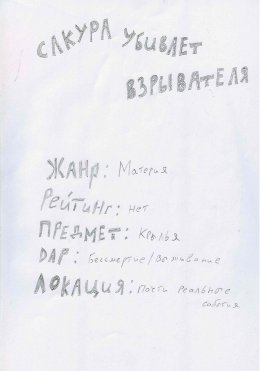 САКУРА УБИВАЕТ
ВЗРЫВАТЕЛЯ
ЖАНР: Материя
РЕЙТИНГ: Нет
ПРЕДМЕТ: Крылья
DАР: Бессмертие/Выживание
ЛОКАЦИЯ: Почти реальные
события